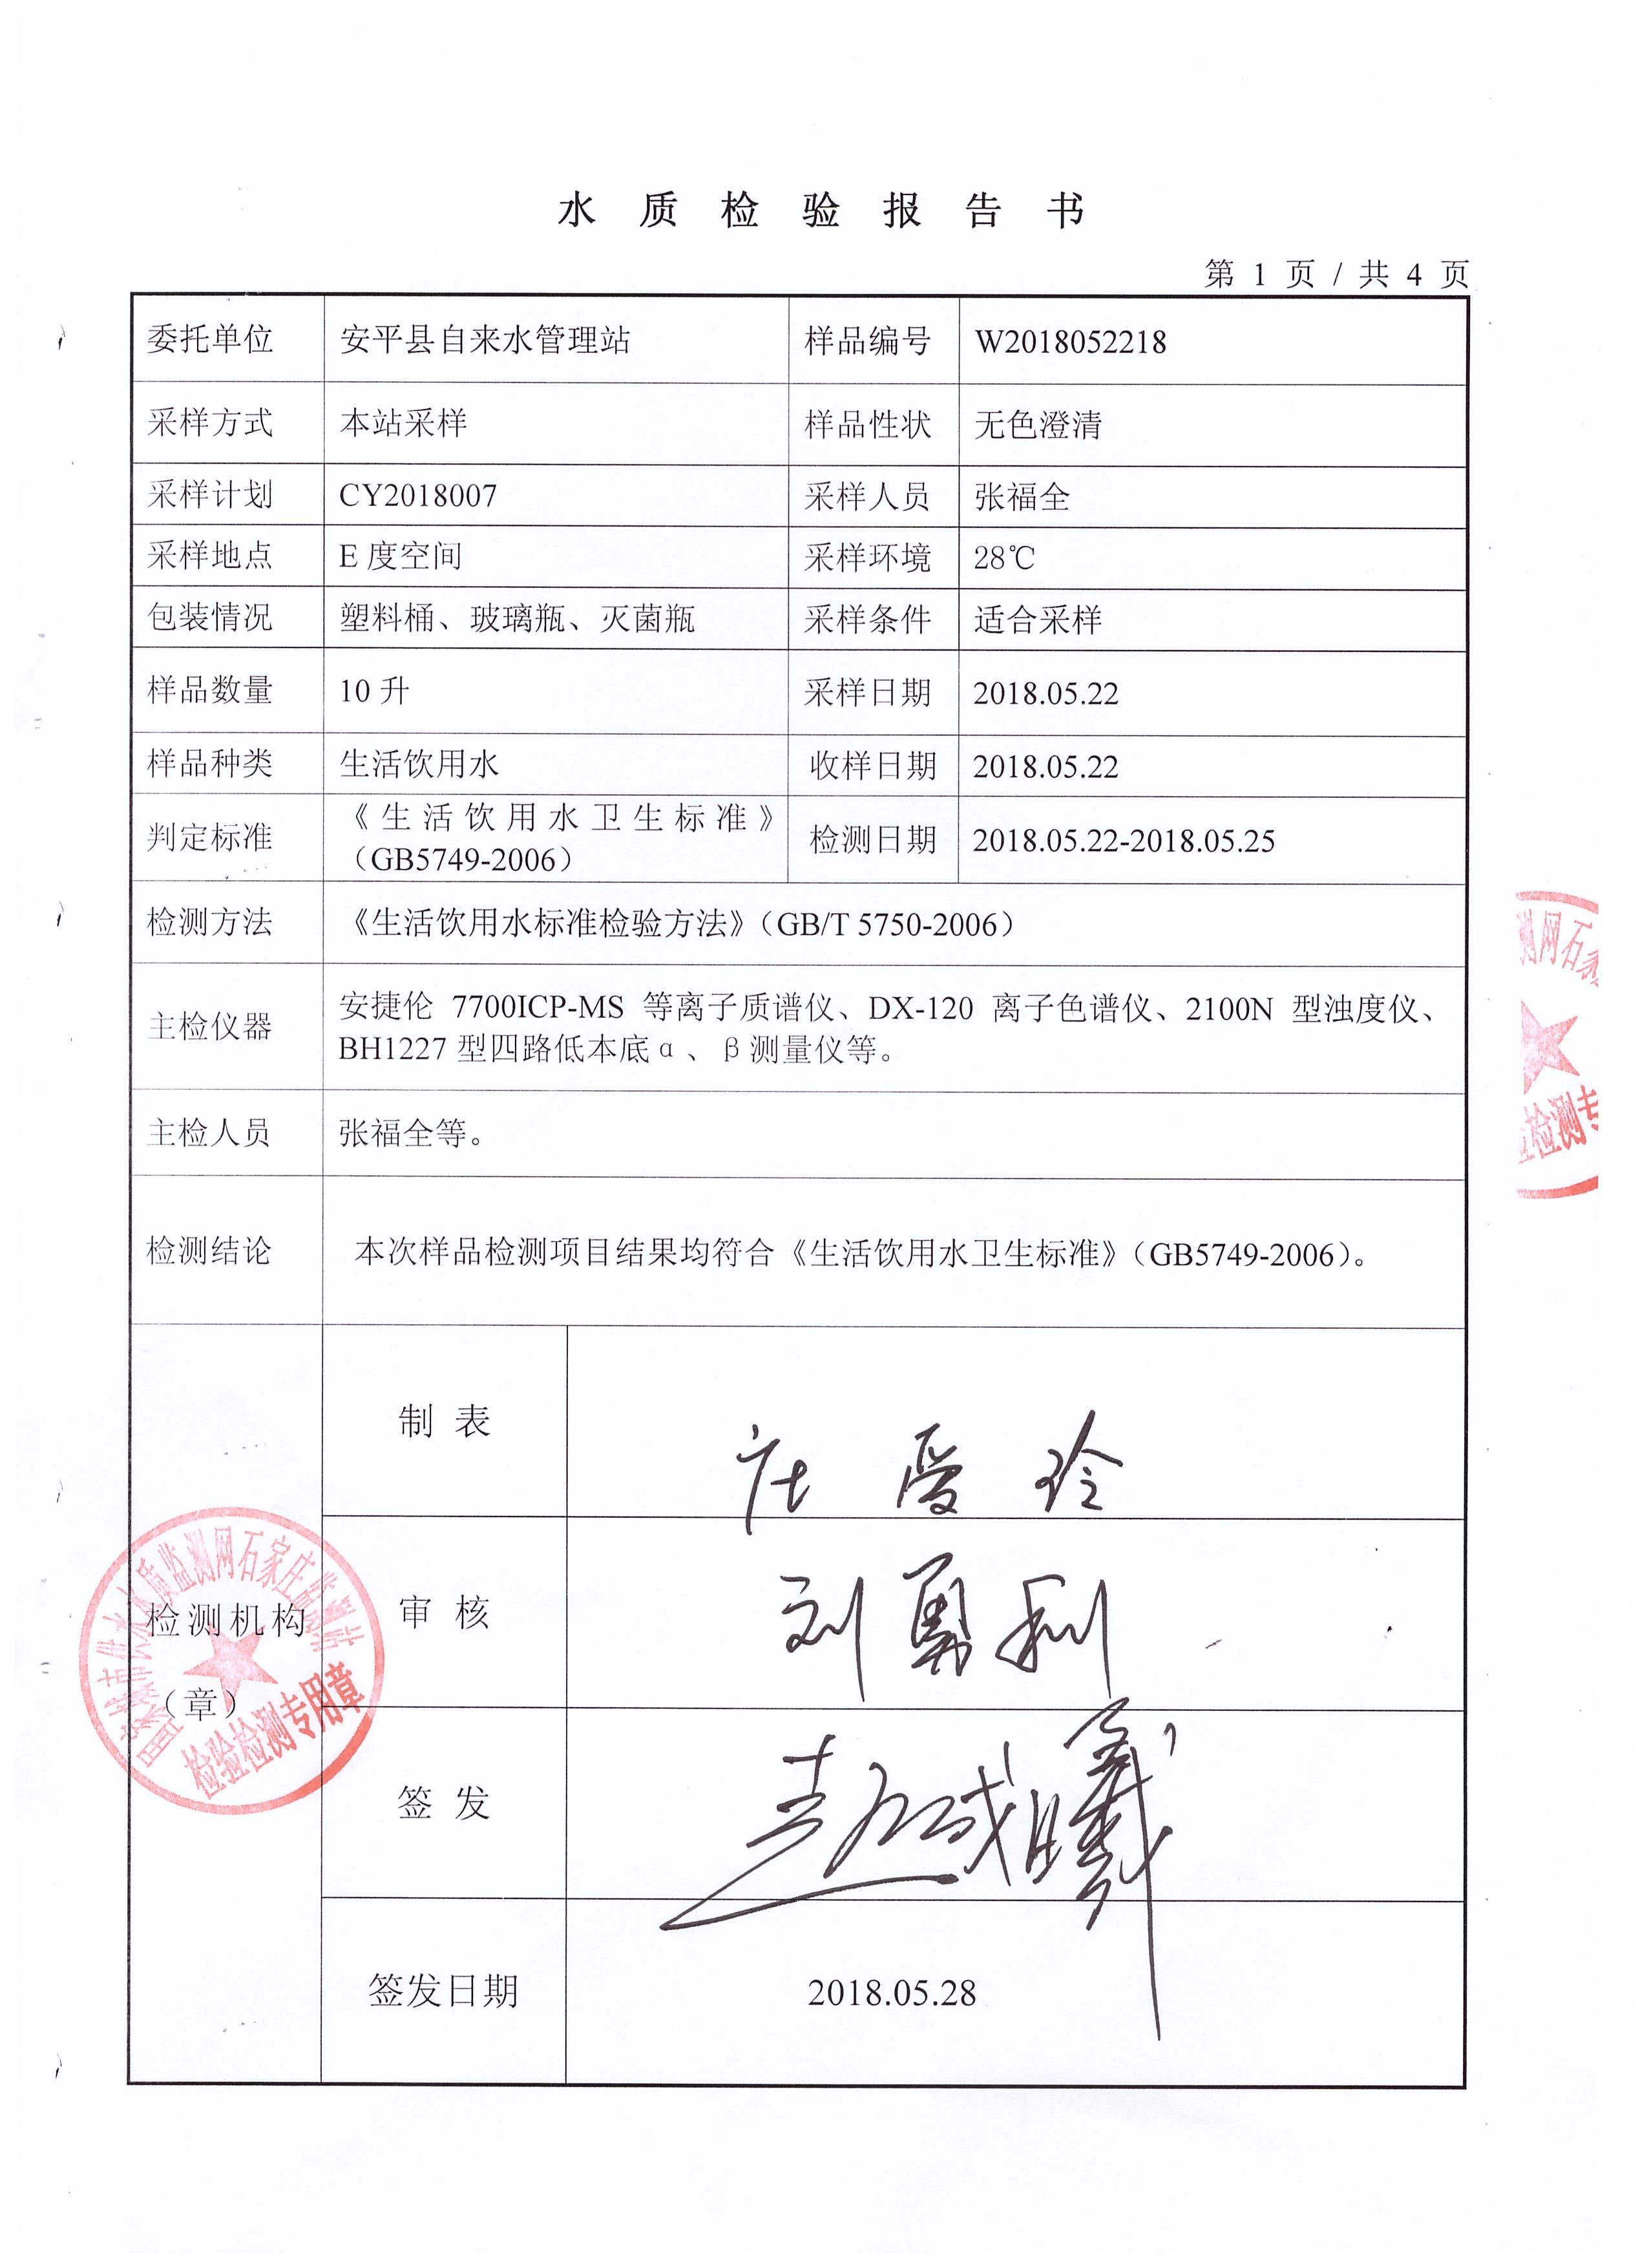 水质检验报告书
第 1 页 / 共 4 页
委托单位 安平县自来水管理站 样品编号 W2018052218
采样方式 本站采样 样品性状 无色澄清
采样计划 CY2018007 采样人员 张福全
采样地点 E 度空间 采样环境 28℃
包装情况 塑料桶、玻璃瓶、灭菌瓶 采样条件 适合采样
样品数量 10 升 采样日期 2018.05.22
样品种类 生活饮用水 收样日期 2018.05.22
判定标准 《生活饮用水卫生标准》
（GB5749-2006） 检测日期 2018.05.22-2018.05.25
检测方法 《生活饮用水标准检验方法》（GB/T 5750-2006）
主检仪器 安捷伦 7700ICP-MS 等离子质谱仪、DX-120 离子色谱仪、2100N 型浊度仪、
BH1227 型四路低本底α、β测量仪等。
主检人员 张福全等。
检测结论 本次样品检测项目结果均符合《生活饮用水卫生标准》（GB5749-2006）。
检测机构
（章）
制 表 庄爱玲
审 核 刘勇利
签 发
签发日期 2018.05.28
国家城市供水水质监测网石家庄监测站
检验检测专用章
测网石家
检检测专